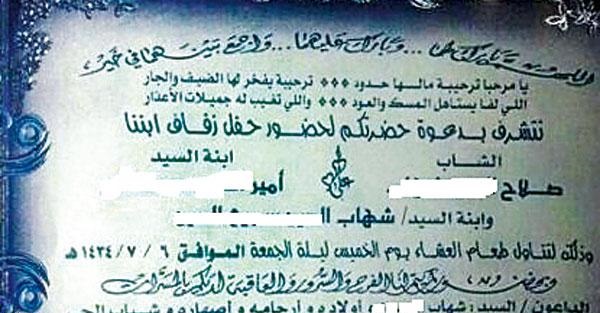 اللهم بارك لهما... وبارك عليهما... واجمع بينهما في خير
يا مرحبا ترحيبة مالها حدود *** ترحيبة يفخر لها الضيف والجار
اللي لفا يستاهل المسك والعود *** واللي تغيب له جميلات الأعذار
نتشرف بدعوة حضرتكم لحضور حفل زفاف ابننا
الشاب ابنة السيد
صلاح أمير
وابنة السيد/ شهاب
وذلك لتناول طعام العشاء يوم الخميس ليلة الجمعة الموافق ٦ / ٧ / ١٤٣٤ هـ
وبحضوركم يتم لنا الفرح والسرور والعاقبة لديكم بالمسرات
الداعون / السيد: شهاب أولاده و أرحامه و أصهاره و شباب